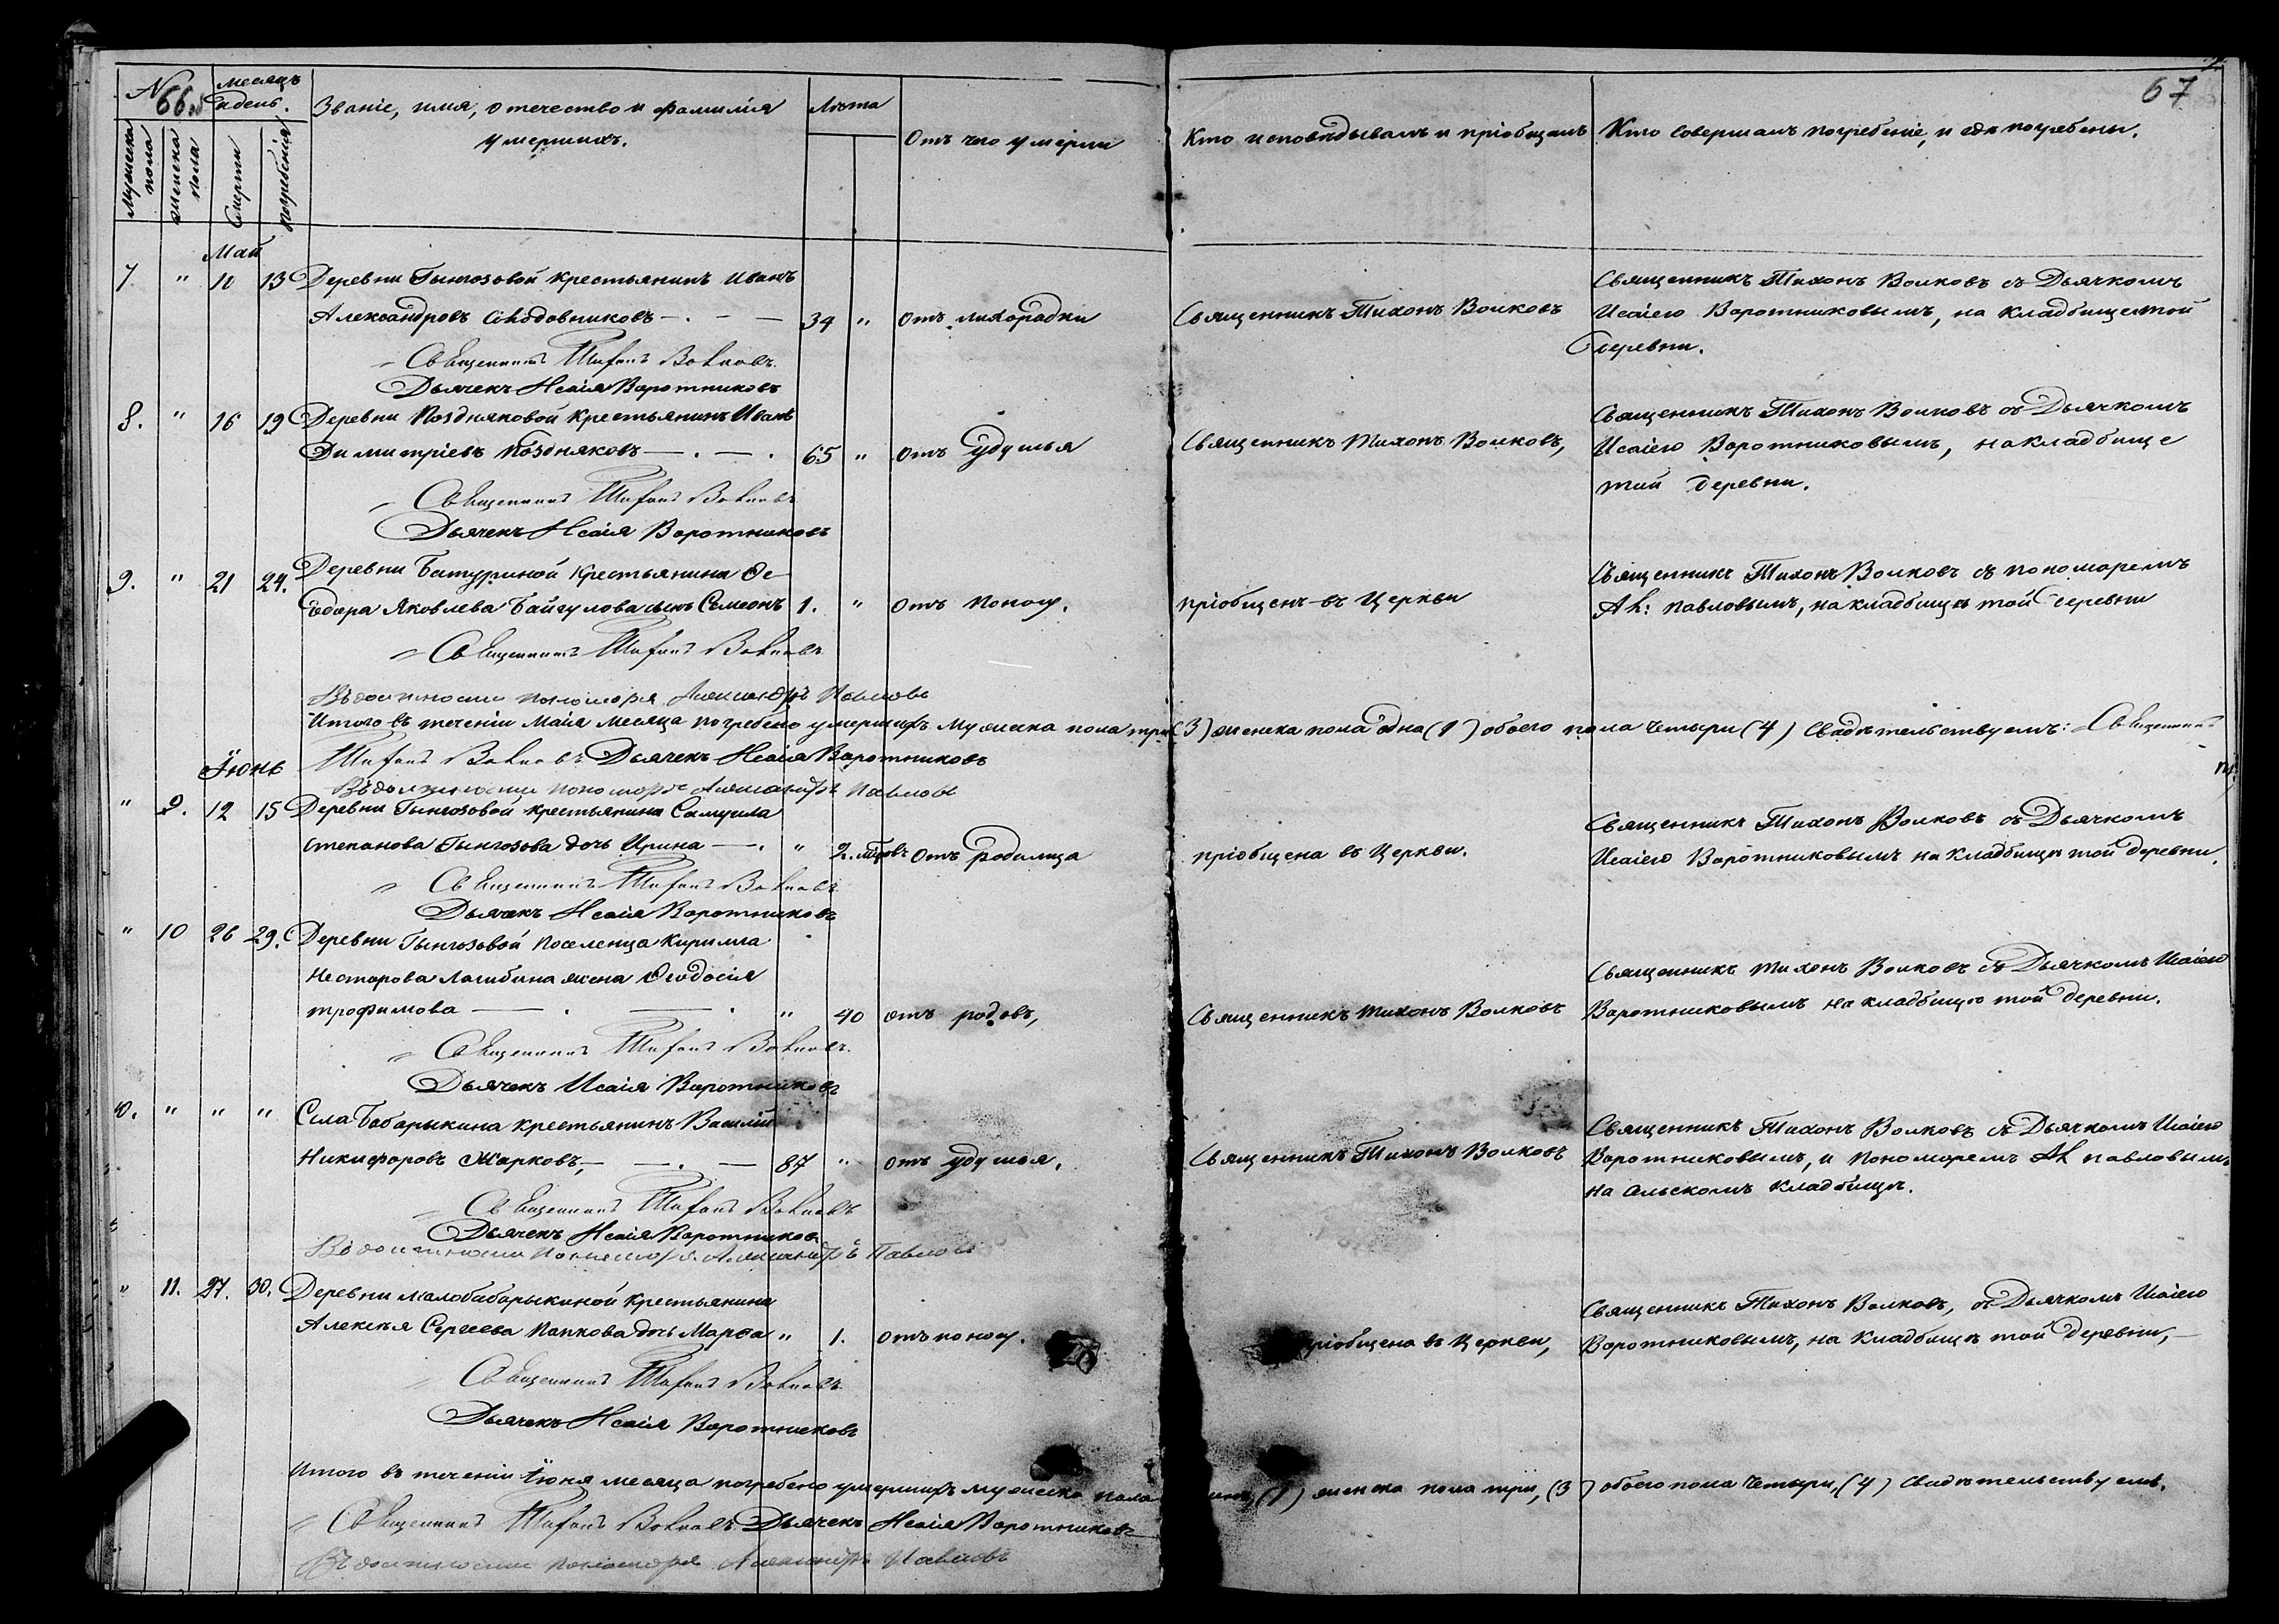 № 66об
Месяцъ и день.
Мужеска пола
Женска пола
Смерти
Погребенія
Званіе, имя, отечество и фамилія
умершихъ.
Лѣта
Отъ чего умерли
Кто исповѣдывалъ и пріобщалъ
Кто совершалъ погребеніе, и гдѣ погребены.
67
Май
7. " 10 13 Деревни Тынгозовой крестьянинъ Иванъ
Александровъ 34 " Отъ лихорадки
Священникъ Тихонъ Волковъ
Священникъ Тихонъ Волковъ съ Дьячкомъ
Исаіею Воротниковымъ, на кладбище той
деревни.
Священникъ Тихонъ Волковъ
Дьячекъ Исаія Воротниковъ
8. " 16 19 Деревни Поздняковой крестьянинъ Иванъ
Димитріевъ Поздняковъ 65 " Отъ удушья
Священникъ Тихонъ Волковъ,
Священникъ Тихонъ Волковъ съ Дьячкомъ
Исаіею Воротниковымъ, на кладбище
той деревни.
Священникъ Тихонъ Волковъ
Дьячекъ Исаія Воротниковъ
9. " 21 24. Деревни Батуриной крестьянина Ѳе-
одора Яковлева Байгулова сынъ Семеонъ 1. " Отъ поносу.
пріобщенъ въ Церкви
Священникъ Тихонъ Волковъ съ пономаремъ
Ал: Павловымъ, на кладбищѣ той деревни
Священникъ Тихонъ Волковъ
Въ должности пономоря Александръ Павловъ
Итого въ теченіи Маія месяца погребено умершихъ мужеска пола три (3) женска пола одна (1) обоего пола четыри (4) Свидѣтельствуемъ: Священникъ
Тихонъ Волковъ Дьячекъ Исаія Воротниковъ
Въ должности пономоря Александръ Павловъ
Іюнь
" 9. 12 15 Деревни Тынгозовой крестьянина Самуила
Степанова Тынгозова дочь Ирина " 2. мѣс. Отъ родимца
пріобщена въ Церкви.
Священникъ Тихонъ Волковъ съ Дьячкомъ
Исаіею Воротниковымъ на кладбищѣ той деревни.
Священникъ Тихонъ Волковъ
Дьячекъ Исаія Воротниковъ
" 10 26 29. Деревни Тынгозовой поселенца Кирилла
Нестарова Лагибина жена Ѳеодосія
трофимова " 40 отъ родовъ,
Священникъ Тихонъ Волковъ
Священникъ Тихонъ Волковъ съ Дьячкомъ Исаіею
Воротниковымъ на кладбищѣ той деревни.
Священникъ Тихонъ Волковъ
Дьячекъ Исаія Воротниковъ
10. " " " Села Бабарыкина крестьянинъ Василій
Никифоровъ Жарковъ, 87 " отъ удушья.
Священникъ Тихонъ Волковъ
Священникъ Тихонъ Волковъ съ Дьячкомъ Исаіею
Воротниковымъ, и пономаремъ Ал павловымъ
на сельскомъ кладбищѣ.
Священникъ Тихонъ Волковъ
Дьячекъ Исаія Воротниковъ
Въ должности пономоря Александръ Павловъ
" 11. 27. 30. Деревни Малобабарыкиной крестьянина
Алексѣя Сергеева Папкова дочь Марѳа " 1. отъ поносу.
пріобщена въ Церкви,
Священникъ Тихонъ Волковъ, съ Дьячкомъ Исаіею
Воротниковымъ, на кладбищѣ той деревни,
Священникъ Тихонъ Волковъ
Дьячекъ Исаія Воротниковъ
Итого въ теченіи Іюня месяца погребено умершихъ мужеска пола (1) женска пола три, (3) обоего пола четыри, (4) Свидѣтельствуемъ.
Священникъ Тихонъ Волковъ Дьячекъ Исаія Воротниковъ
Въ должности пономоря Александръ Павловъ